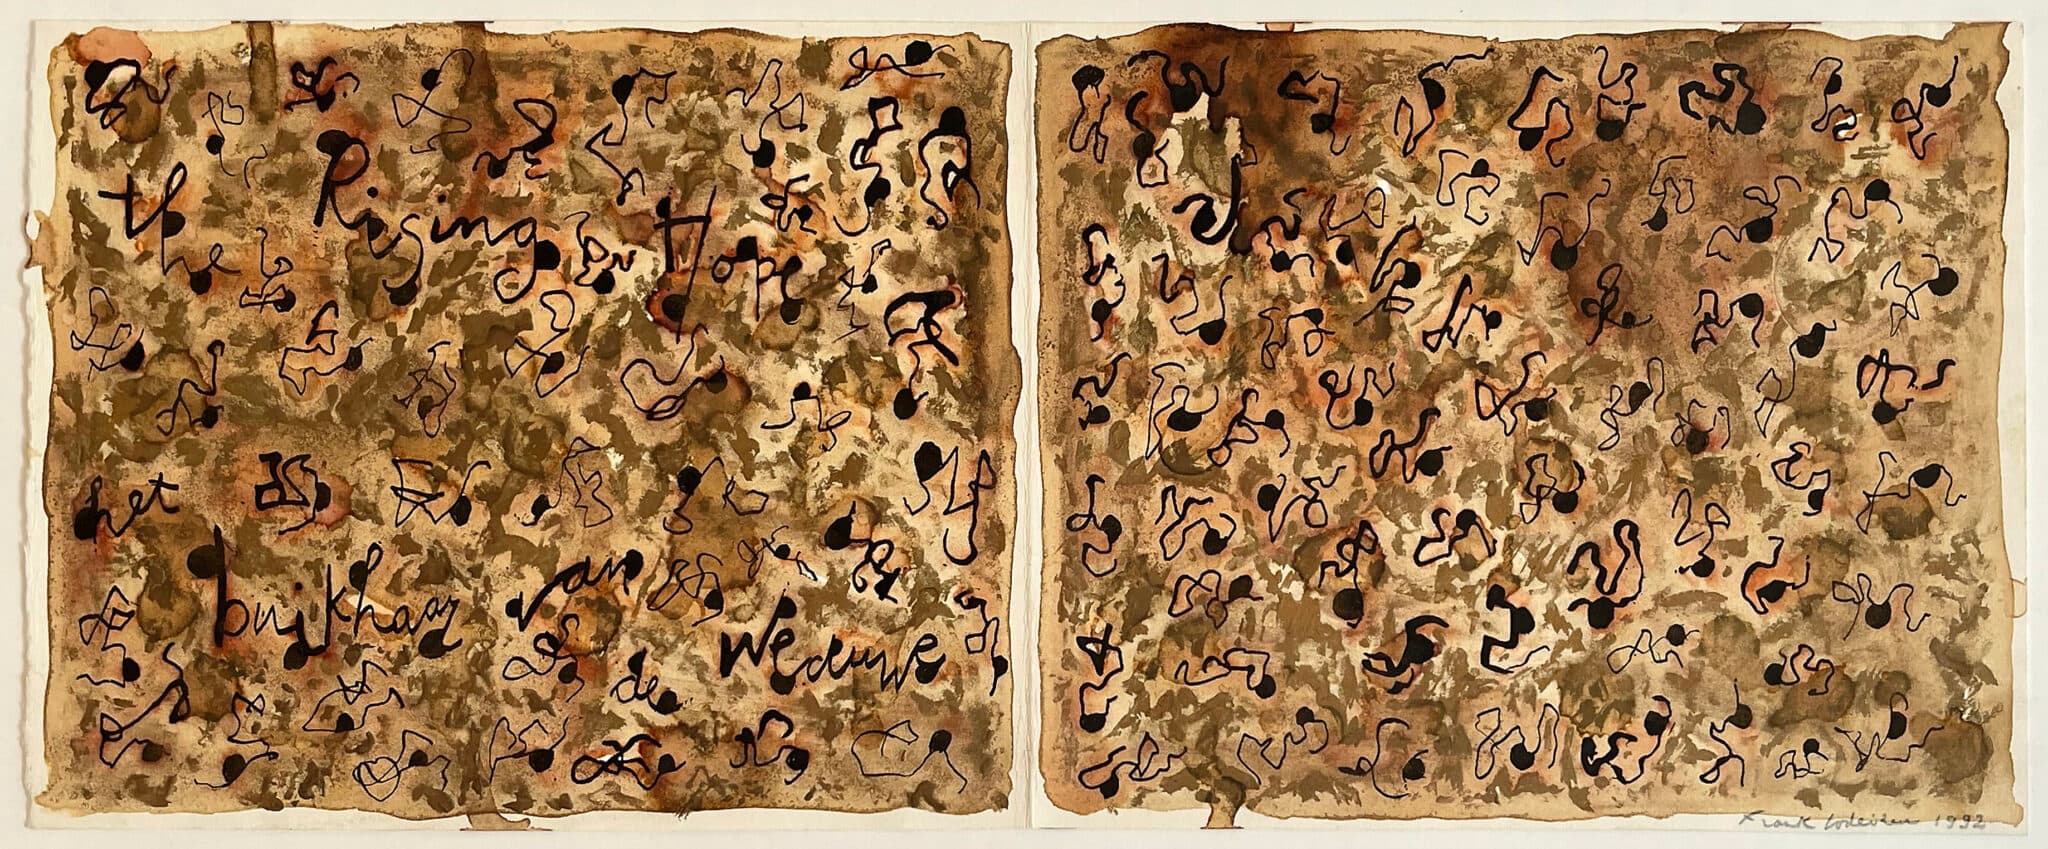 the Rising Hope
het
buikhaar van
de Weduwe
Frank Lodeizen 1992